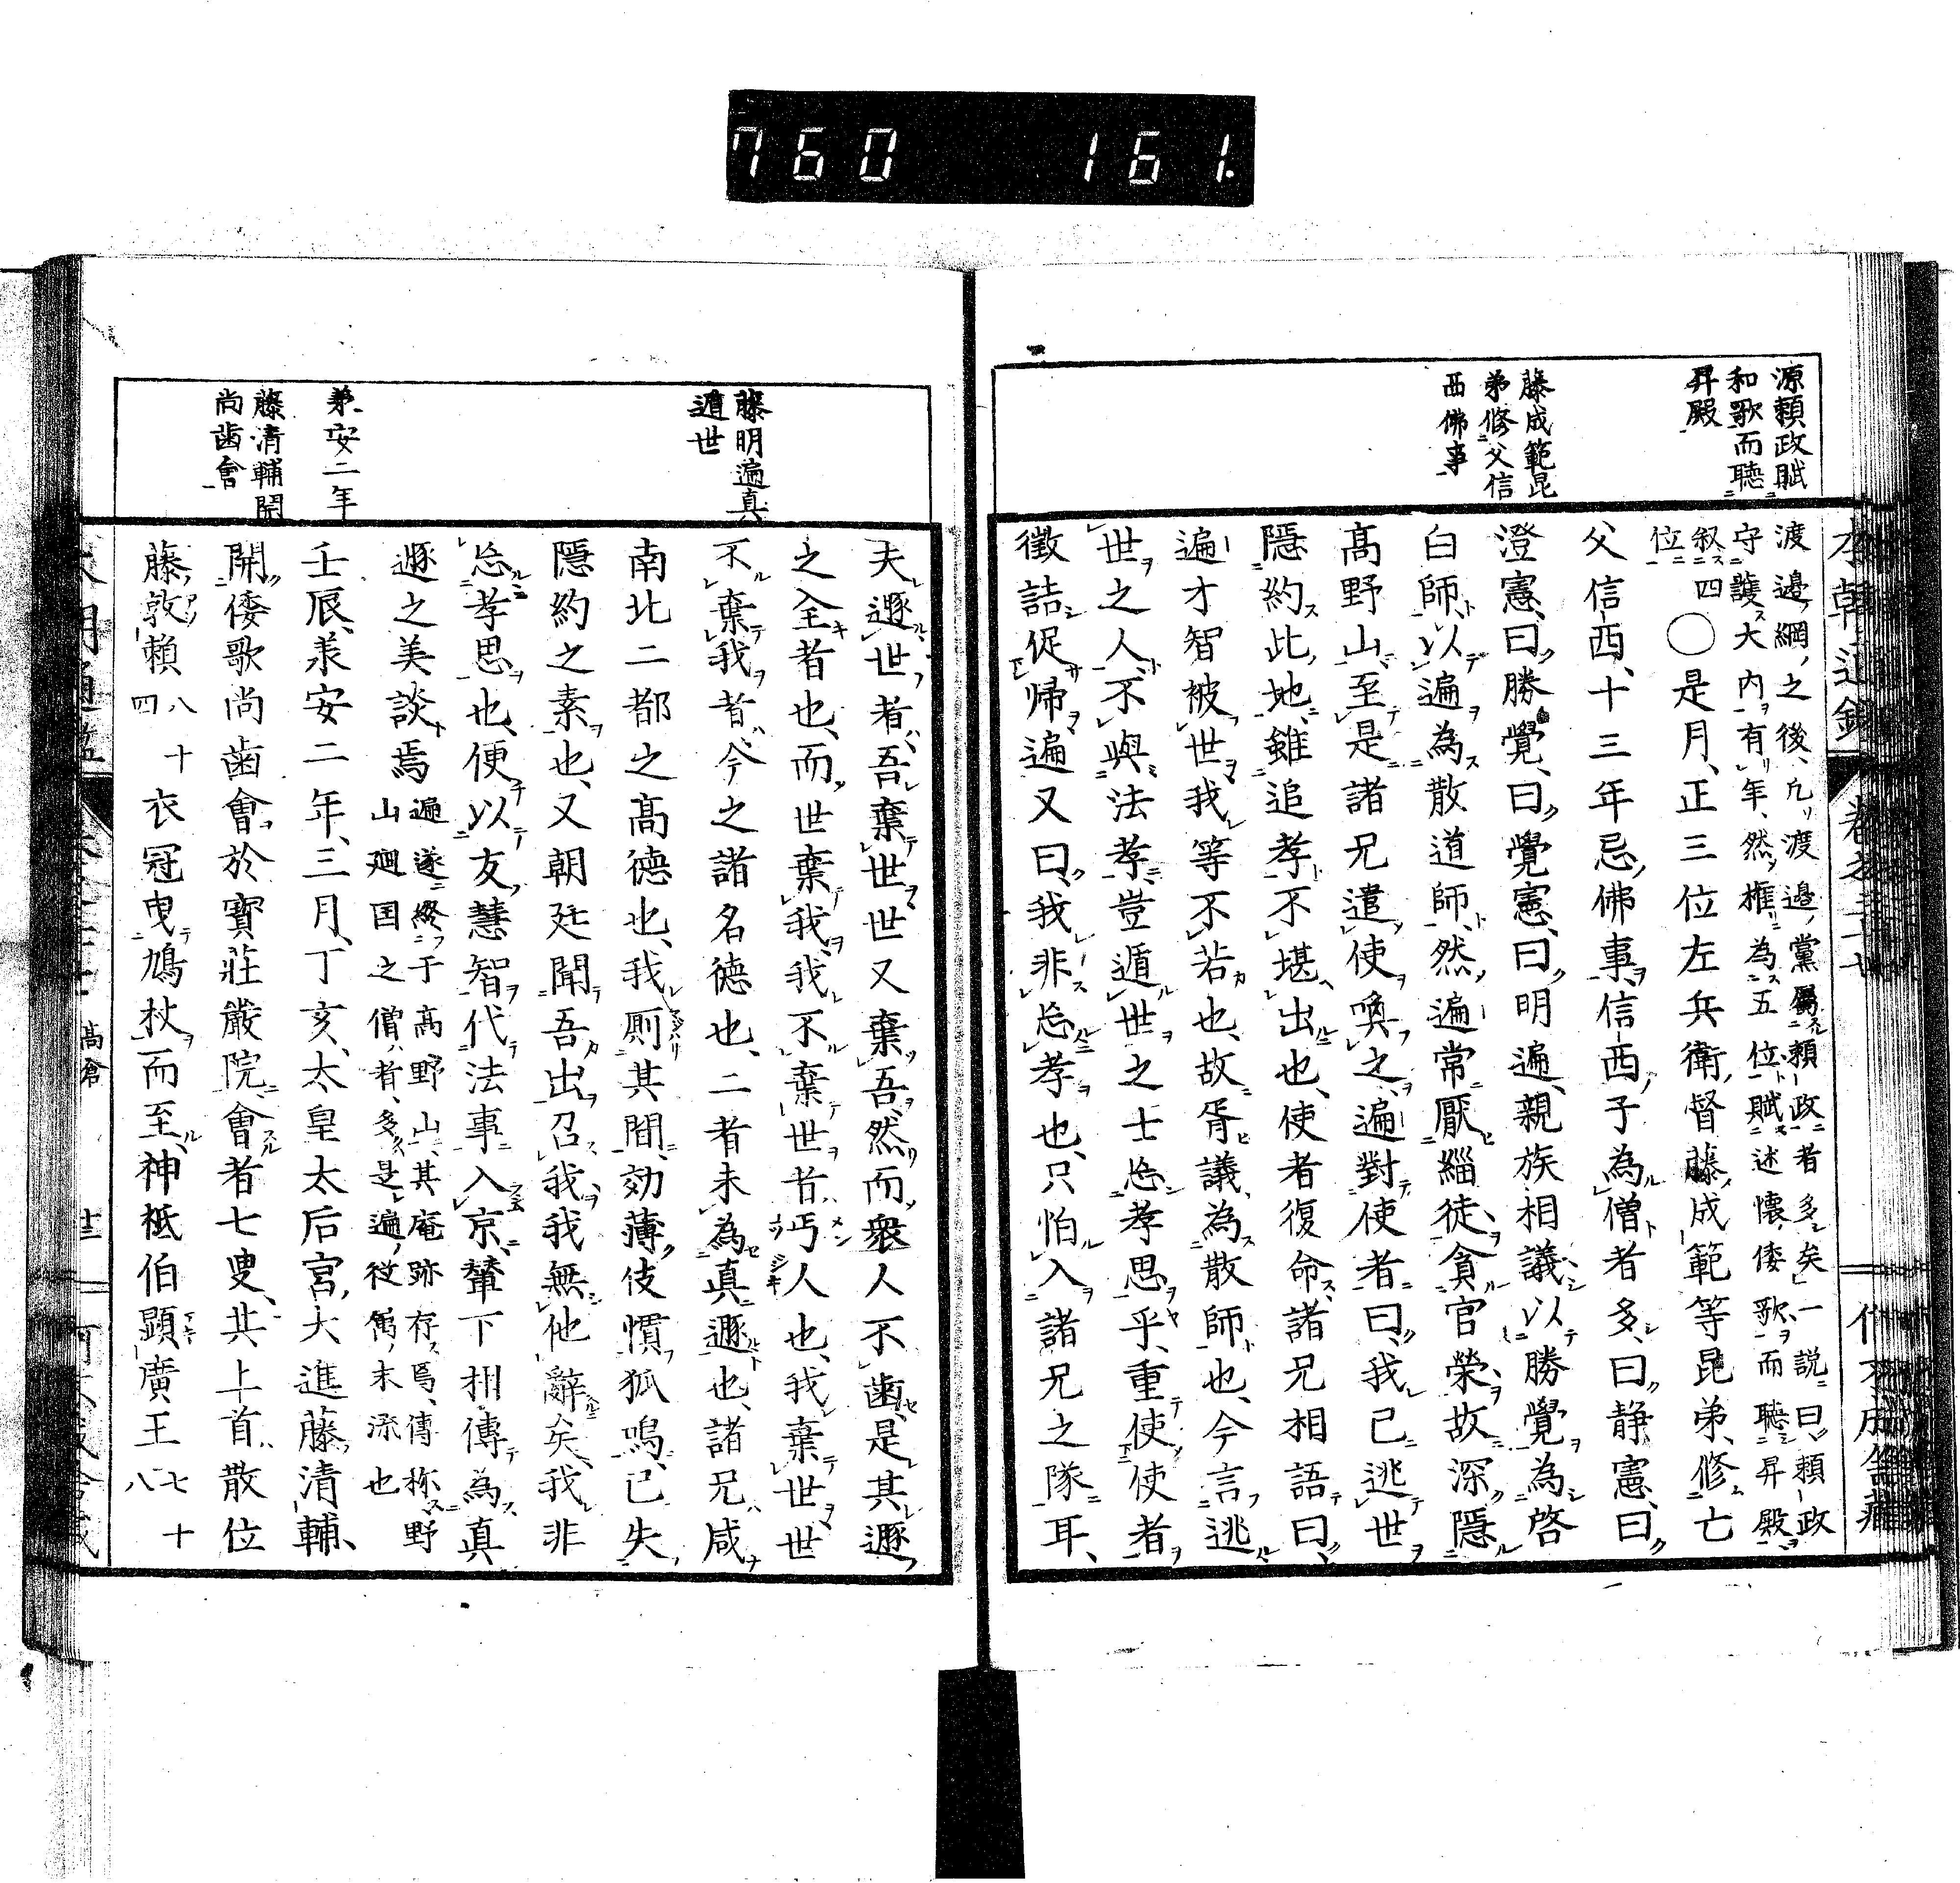 760 161.
源頼政賦
和歌而聴
昇殿
藤成範昆
弟修父信
西佛事
渡邉綱之後凢渡邉黨屬頼政者多矣一説曰頼政
守護大内有年然権為五位賦述懐倭歌而聴昇殿
叙四
位
〇是月正三位左兵衛督藤成範等昆弟修亡
父信西十三年忌佛事信西子為僧者多曰静憲曰
澄憲曰勝覺曰覺憲曰明遍親族相議以勝覺為啓
白師以遍為散道師然遍常厭緇徒貪官榮故深隠
髙野山至是諸兄遣使喚之遍對使者曰我已逃世
隠約此地雖追孝不堪出也使者復命諸兄相語曰
遍才智被世我等不若也故胥議為散師也今言逃
世之人不與法孝豈遁世之士忘孝思乎重使使者
徴詰促帰遍又曰我非忘孝也只怕入諸兄之隊耳
藤明遍真
遁世
兼安二年
藤清輔開
尚歯會
夫遯世者吾棄世世又棄吾然而衆人不歯是其遯
之全者也而世棄我我不棄世者丐人也我棄世世
不棄我者今之諸名德也二者未為真遯也諸兄咸
南北二都之髙德也我厠其間効薄伎慣狐鳴已失
隠約之素也又朝廷聞吾出召我我無他辭矣我非
忘孝思也便以友慧智代法事入京輦下相傳為真
遯之美談焉
遍遂終于高野山其庵跡存焉傳称野
山廻国之僧者多是遍役属末流也
壬辰兼安二年三月丁亥太皇太后宮大進藤清輔
開倭歌尚歯會於寳莊嚴院會者七叟共上首散位
藤敦頼
八十
四
衣冠曳鳩杖而至神祗伯顕廣王
七十
八
高倉